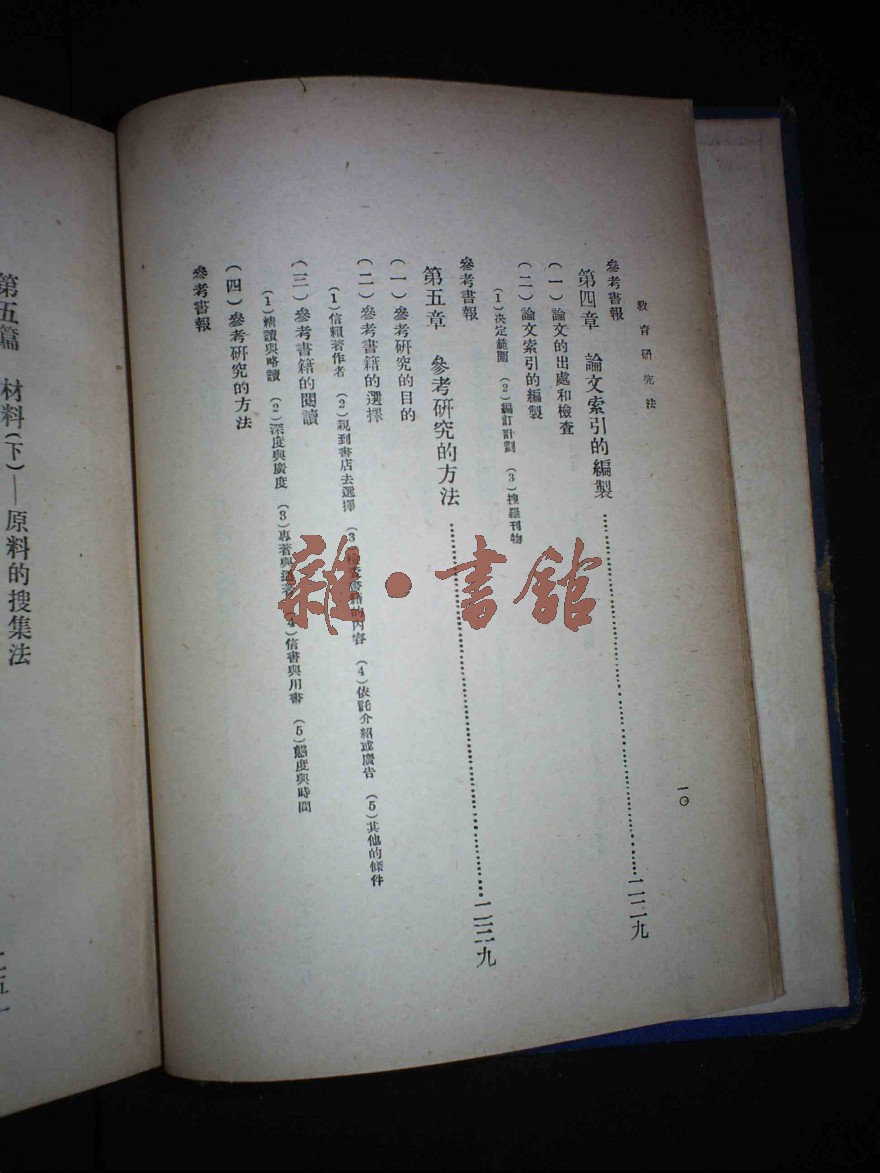 教育研究法
一〇
參考書報
第四章 論文索引的編製……二二九
(一)論文的出處和檢查
(二)論文索引的編製
(1)決定範圍 (2)編訂計劃 (3)搜羅刊物
參考書報
第五章 參考研究的方法……二三九
(一)參考研究的目的
(二)參考書籍的選擇
(1)信賴著作者 (2)親到書店去選擇 (3)檢查書籍的內容 (4)依託介紹或廣告 (5)其他的條件
(三)參考書籍的閱讀
(1)精讀與略讀 (2)深度與廣度 (3)專著與 (4)信書與用書 (5)態度與時間
(四)參考研究的方法
參考書報
第五篇 材料(下)—原料的搜集法
二五一
雜·書館